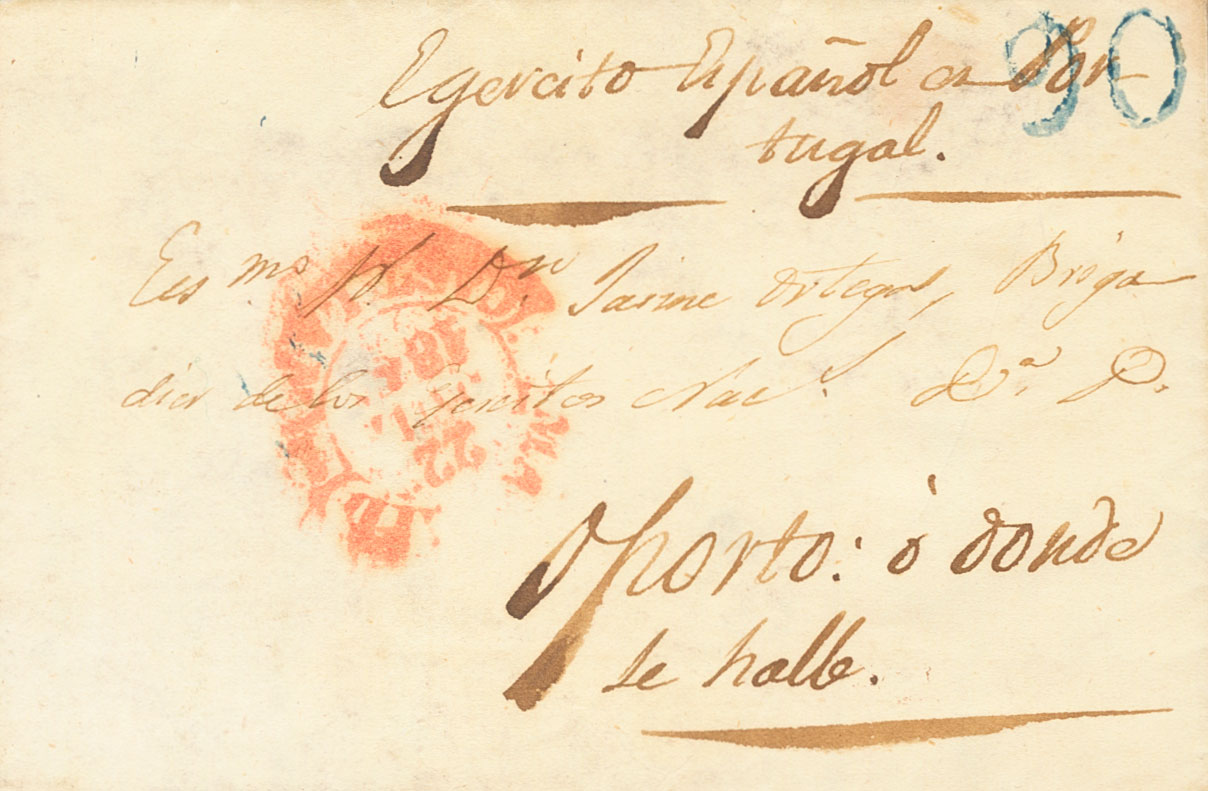 Egercito Español en Por
tugal.
90
Ecs.mo Sr. Dn. Jaime Ortega, Briga
dier de los Egercitos Nac.s
Oporto: ó donde
se halle.
22
18